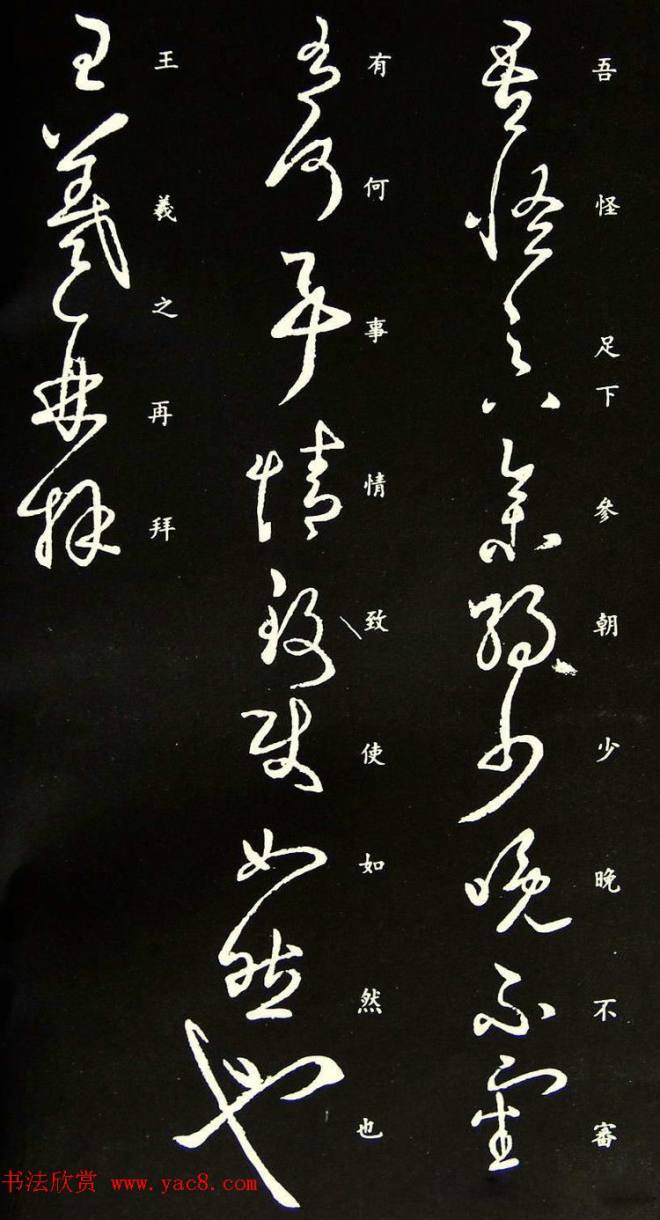 吾怪足下參朝少晚不審
有何事情致使如然也
王羲之再拜
书法欣赏 www.yac8.com